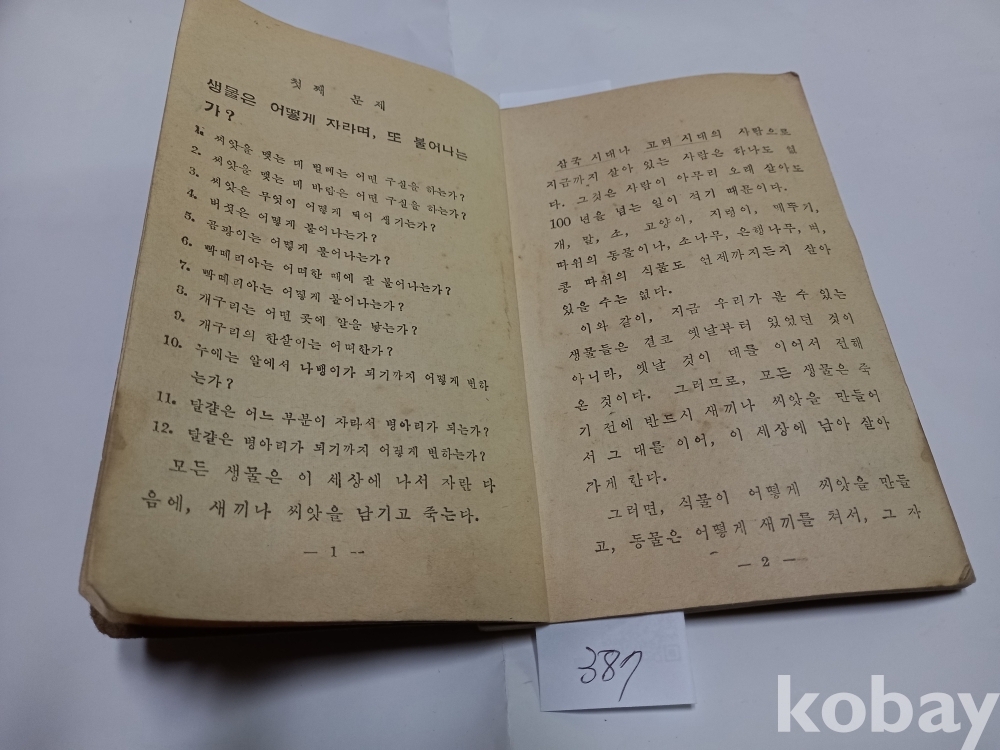 첫째 문제
생물은 어떻게 자라며, 또 불어나는
가?
1. 씨앗을 맺는 데 벌레는 어떤 구실을 하는가?
2. 씨앗을 맺는 데 바람은 어떤 구실을 하는가?
3. 씨앗은 무엇이 어떻게 되어 생기는가?
4. 버섯은 어떻게 불어나는가?
5. 곰팡이는 어떻게 불어나는가?
6. 빡떼리아는 어떠한 때에 잘 불어나는가?
7. 빡떼리아는 어떻게 불어나는가?
8. 개구리는 어떤 곳에 알을 낳는가?
9. 개구리의 한살이는 어떠한가?
10. 누에는 알에서 나뱅이가 되기까지 어떻게 변하
는가?
11. 달걀은 어느 부분이 자라서 병아리가 되는가?
12. 달걀은 병아리가 되기까지 어떻게 변하는가?
모든 생물은 이 세상에 나서 자란 다
음에, 새끼나 씨앗을 남기고 죽는다.
— 1 —
삼국 시대나 고려 시대의 사람으로
지금까지 살아 있는 사람은 하나도 없
다. 그것은 사람이 아무리 오래 살아도
100 년을 넘는 일이 적기 때문이다.
개, 말, 소, 고양이, 지렁이, 메뚜기,
따위의 동물이나, 소나무, 은행나무, 벼,
콩 따위의 식물도 언제까지든지 살아
있을 수는 없다.
이와 같이, 지금 우리가 볼 수 있는
생물들은 결코 옛날부터 있었던 것이
아니라, 옛날 것이 대를 이어서 전해
온 것이다. 그러므로, 모든 생물은 죽
기 전에 반드시 새끼나 씨앗을 만들어
서 그 대를 이어, 이 세상에 남아 살아
가게 한다.
그러면, 식물이 어떻게 씨앗을 만들
고, 동물은 어떻게 새끼를 쳐서, 그 가
— 2 —
387
kobay